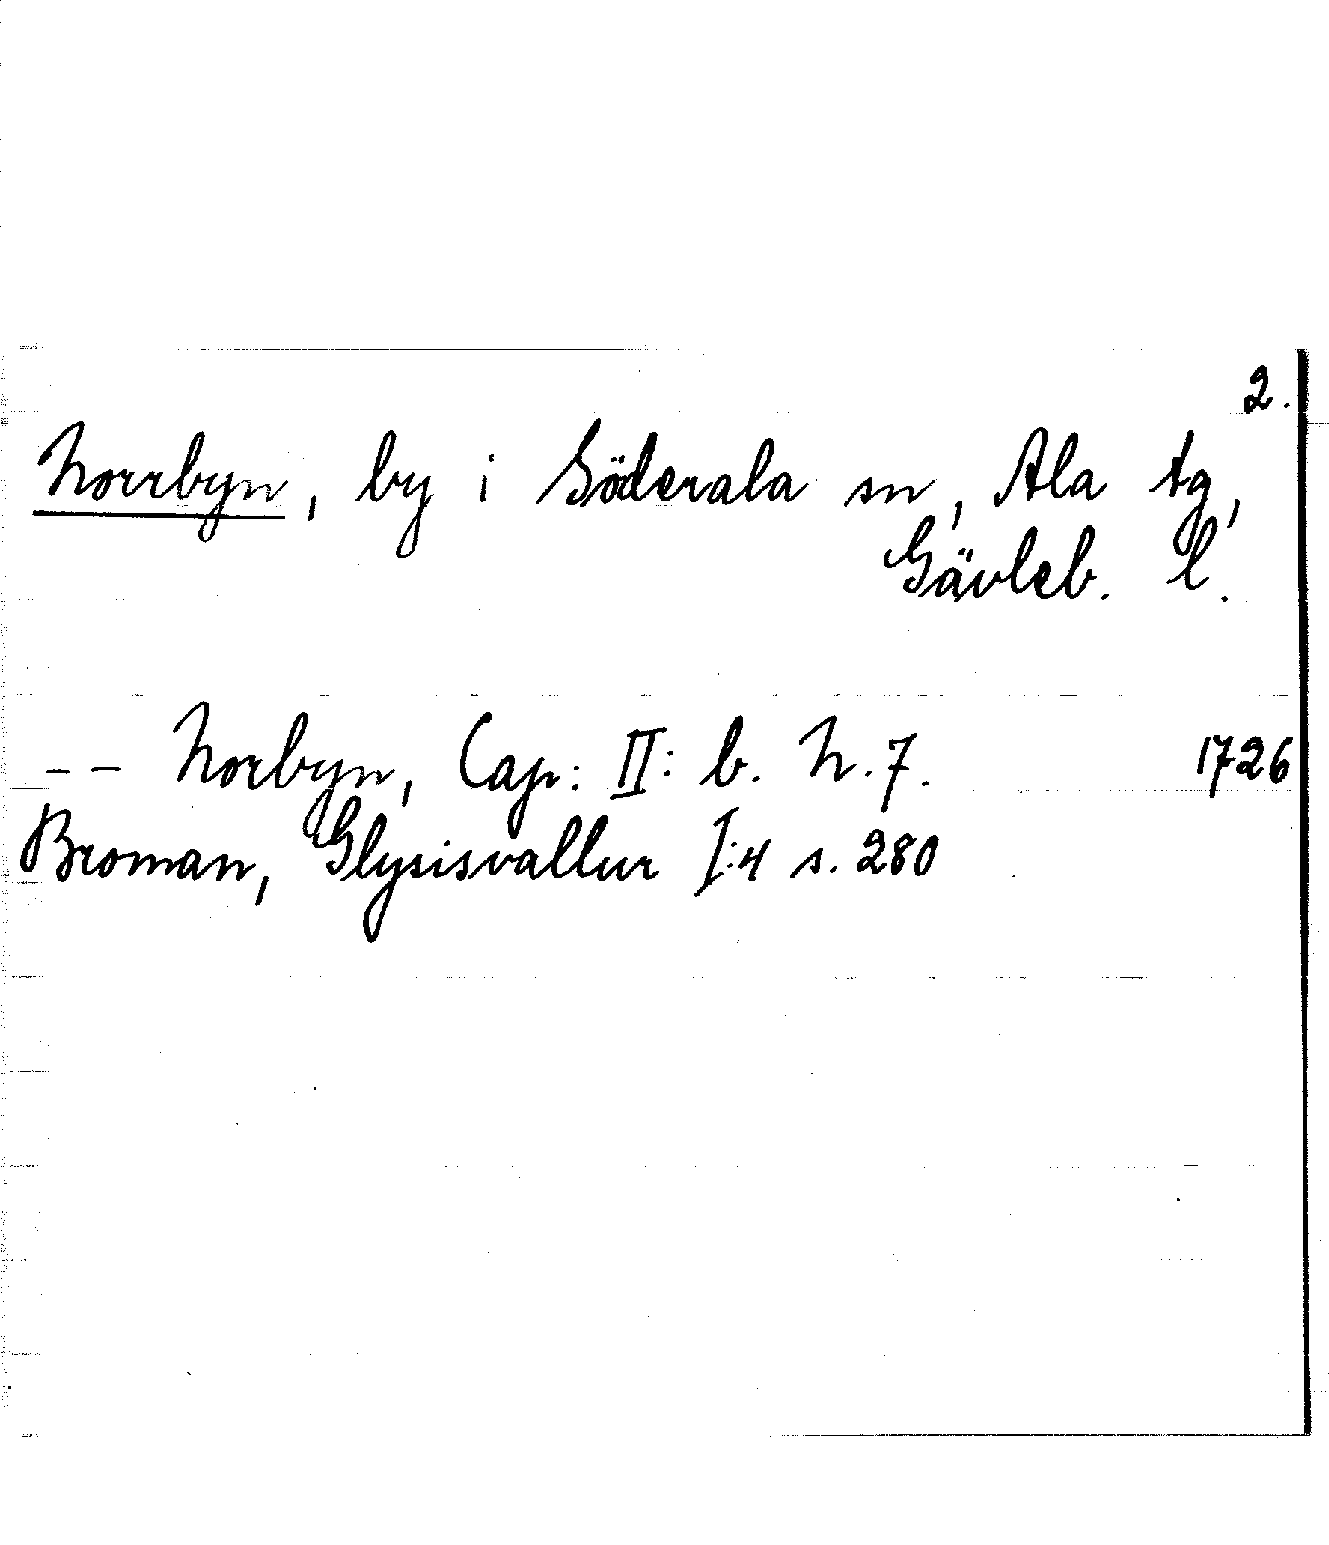 2.
Norrbyn, by i Söderala sn, Ala tg,
Gävleb. l.
-- Norbyn, Cap: II: b. N. 7. 1726
Broman, Glysisvallur I:4 s. 280